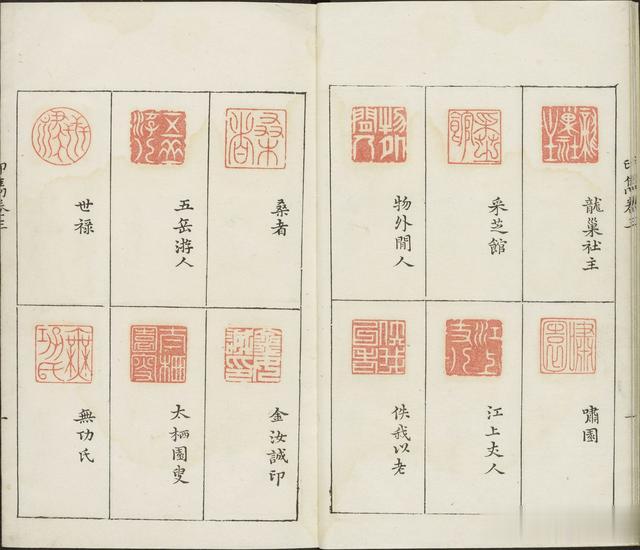 印雋卷三
龍巢社主
嘯園
采芝館
江上丈人
物外閒人
佚我以老
桑者
金汝誠印
五岳游人
大栖園叟
世祿
無功氏
印雋卷三